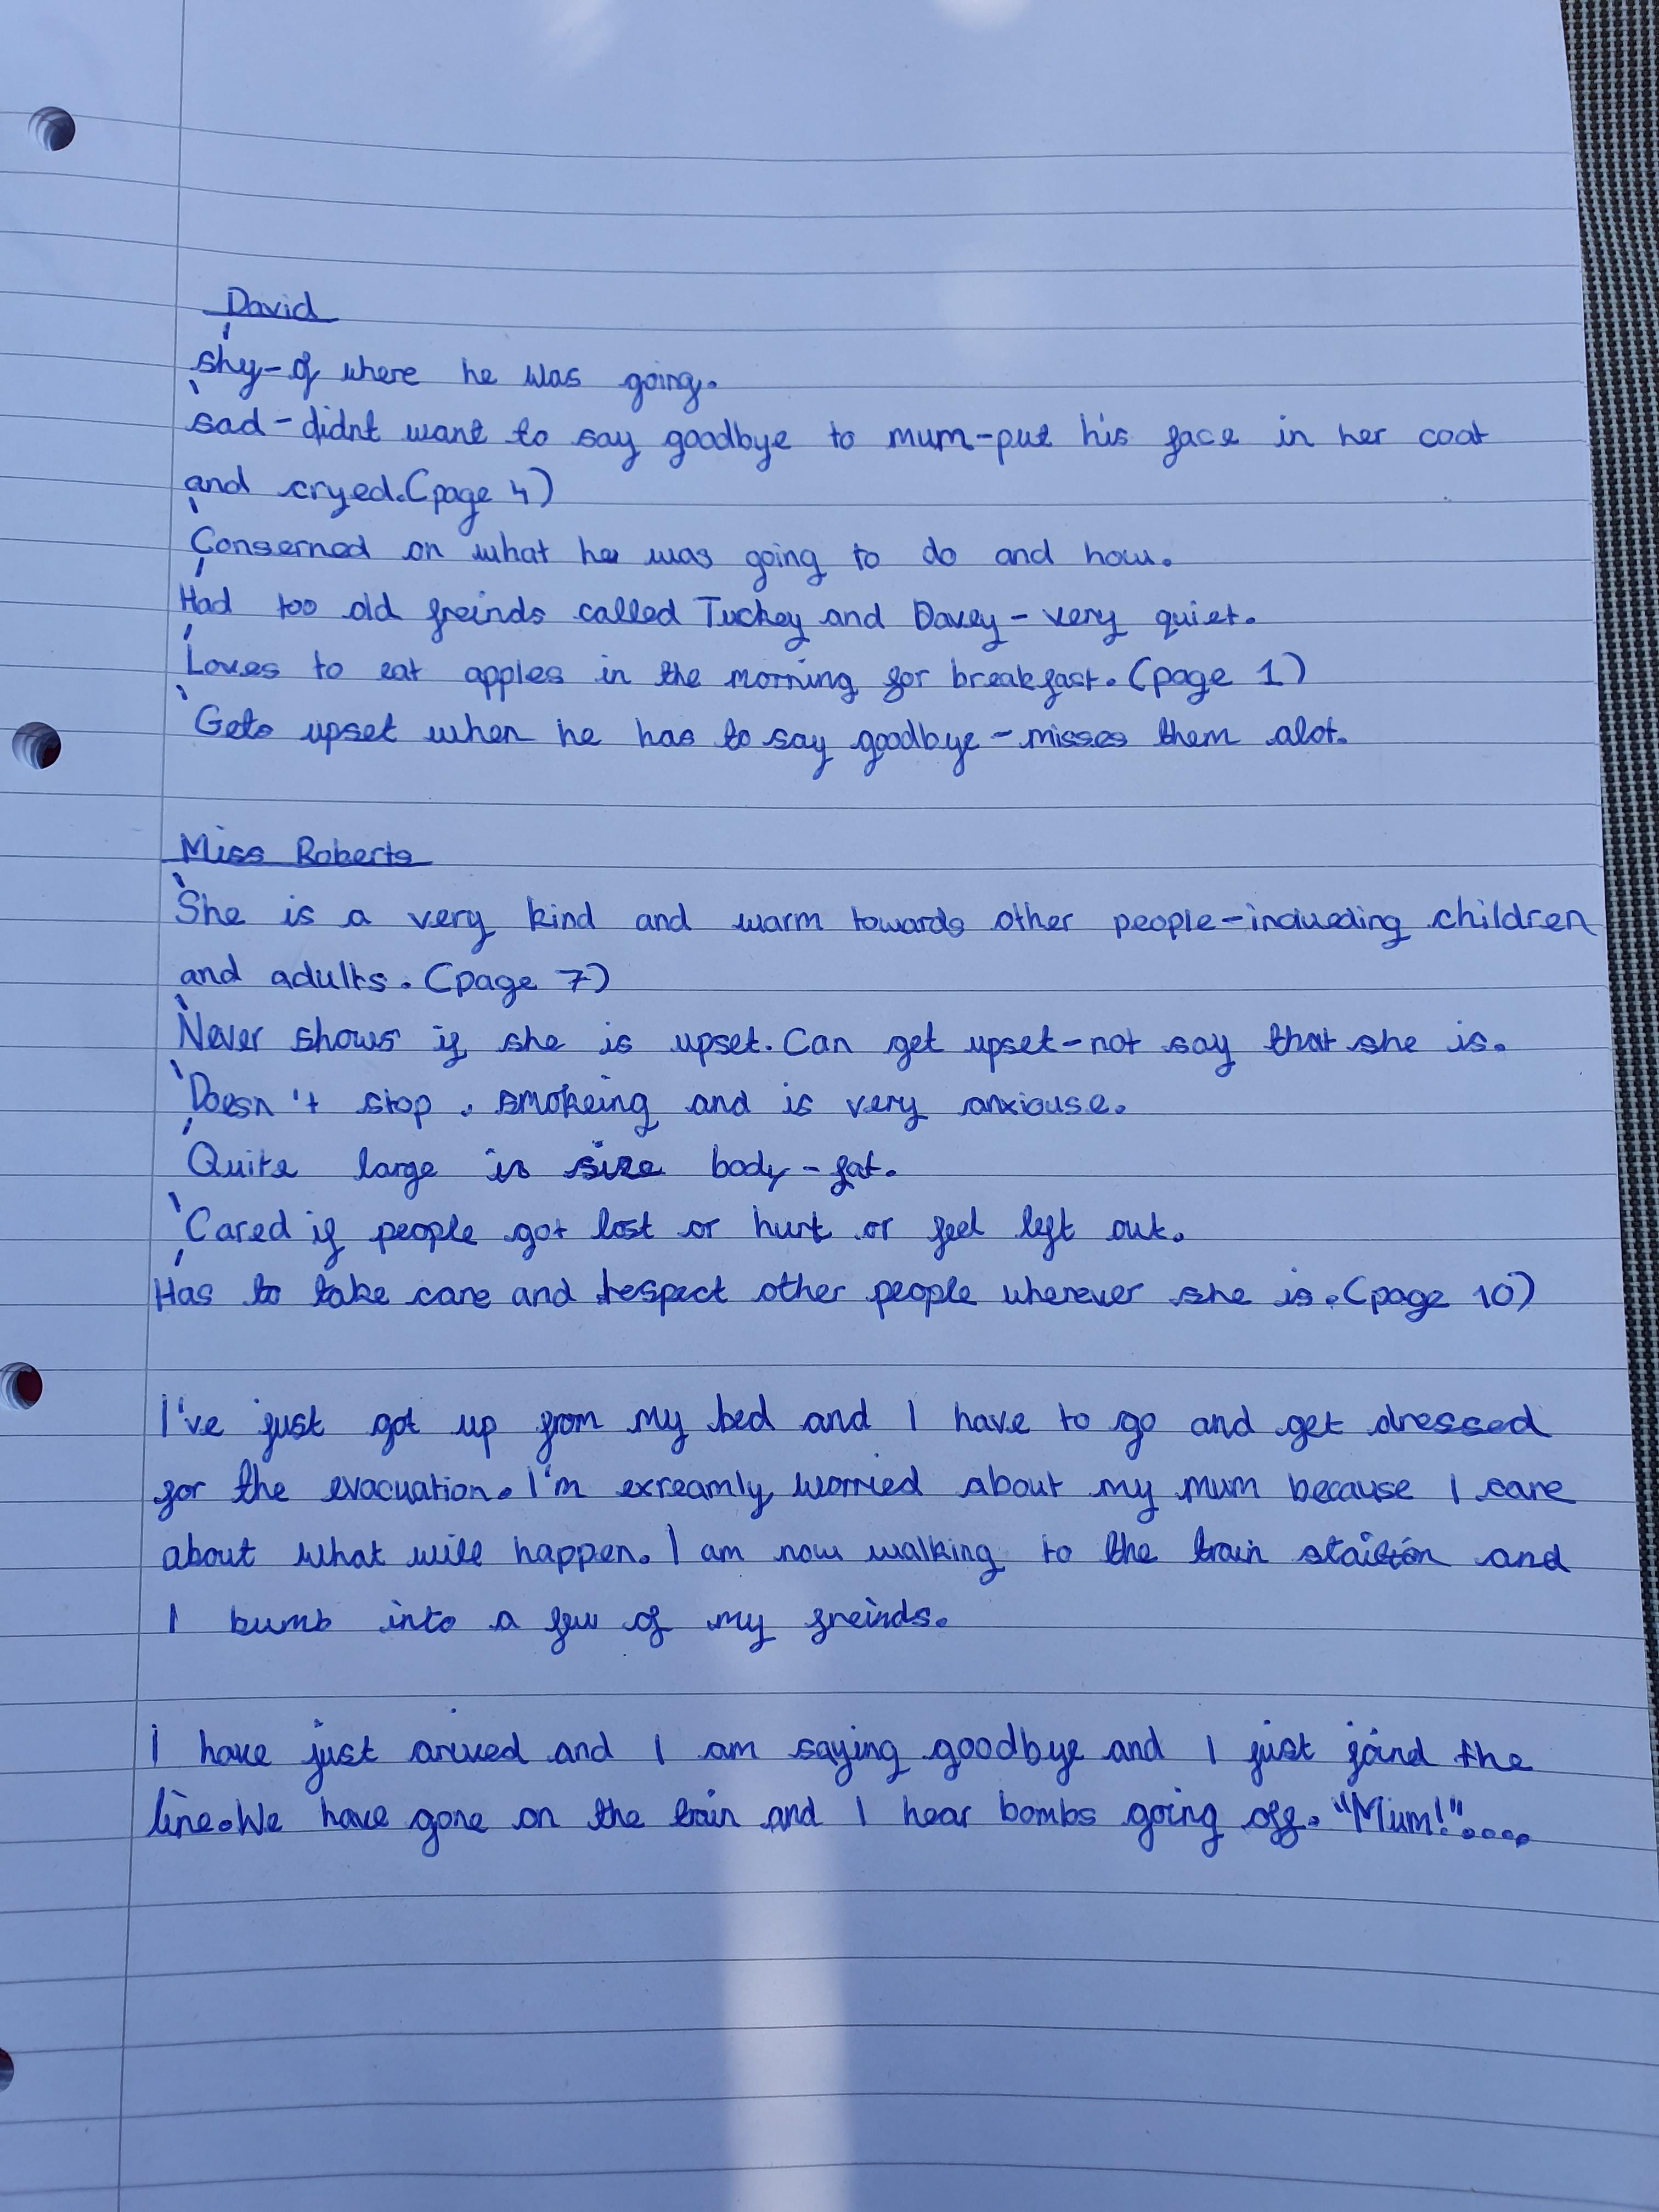 David
shy-of where he was going.
sad-didnt want to say goodbye to mum-put his face in her coat
and cryed.(page 4)
Conserned on what he was going to do and how.
Had too old freinds called Tuckey and Davey-very quiet.
Loves to eat apples in the morning for breakfast.(page 1)
Gets upset when he has to say goodbye-misses them alot.
Miss Roberts
She is a very kind and warm towards other people-inclueding children
and adults.(page 7)
Never shows if she is upset. Can get upset-not say that she is.
Doesn't stop. smokeing and is very anxiouse.
Quite large in size body-fat.
Cared if people got lost or hurt or feel left out.
Has to take care and respect other people wherever she is.(page 10)
I've just got up from my bed and I have to go and get dressed
for the evacuation. I'm exreamly worried about my mum because I care
about what will happen. I am now walking to the train and
I bumb into a few of my freinds.
I have just arived and I am saying goodbye and I just joind the
line.We have gone on the train and I hear bombs going off. "Mum!"....